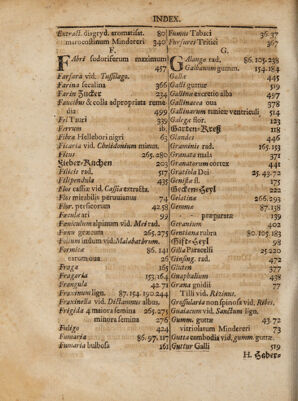 INDEX.
Extract. diagryd. aromatisat. 80
marocostinum Mindereri 340
F.
Fabri sudoriferum maximum
457
Farfara vid. Tussilago.
Farina fœcalina 366
Farin Zucker 234
Faucibus & colla adpropriata remedia
499
Fri Tauri 339
Ferrum 18.
Fibræ Hellebori nigri 63
Ficaria vid. Chelidonium minus.
Ficus 265.280
Fieber-Kuchen 203
Filicis rad. 517
Filipendula 435
Flos cassiæ vid. Cassia extracta.
Flor mirabilis peruvianus 74
Flor. persicorum 42.58
Fœculæ ari 99
Fœniculum alpinum vid. Mei rad.
Fœnu græcum 265.275
Folium indum vid. Malabathrum.
Formica 86.141
earum ova 26
Fraga 165
Fragaria 153.164
Frangula 42.71
Fraxinum lign. 87.154.190.244
Fraxinella vid. Dictamnus albus.
Frigida 4 majora semina 265.275
minora semina 276
Fuligo 424
Fumaria 86.97.117
Fumaria bulbosa 161
Fumus Tabaci 36.37
Furfures Tritici 367
G.
Galanga rad. 86.105.238
Galbanum gummi. 154.184
Galla 445
Galli guttur 519
Gallinæ excretio alba 497
Gallinarum ova 378
Gallinarum tunicæ ventriculi 514
Galega flor. 123
Garten-Kreß 118
Glandes 446
Graminis rad. 165.153
Granata mala 371
Granatorum cortex 441
Gratiola Dei 25.43.72
Genistæ fl. 175
222
Gelatina 266.293
Gemma 87.138
præparata 139
Geranium 402
Gentiana rubra 80.105.183
98
Gilla Paracelsi 25.220
Glacies 165
Gluten 377
Gnaphalium 438
Grana gnidii 77
Tilli vid. Ricinus.
Grossularia non spinosa vid. Ribes.
Guaiacum vid. Sanctum lign.
Gumm. guttæ 43.72
vitriolatum Mindereri 73
Gutta cambodia vid. gumm. guttæ.
Guttur Galli 519
H. Haber-